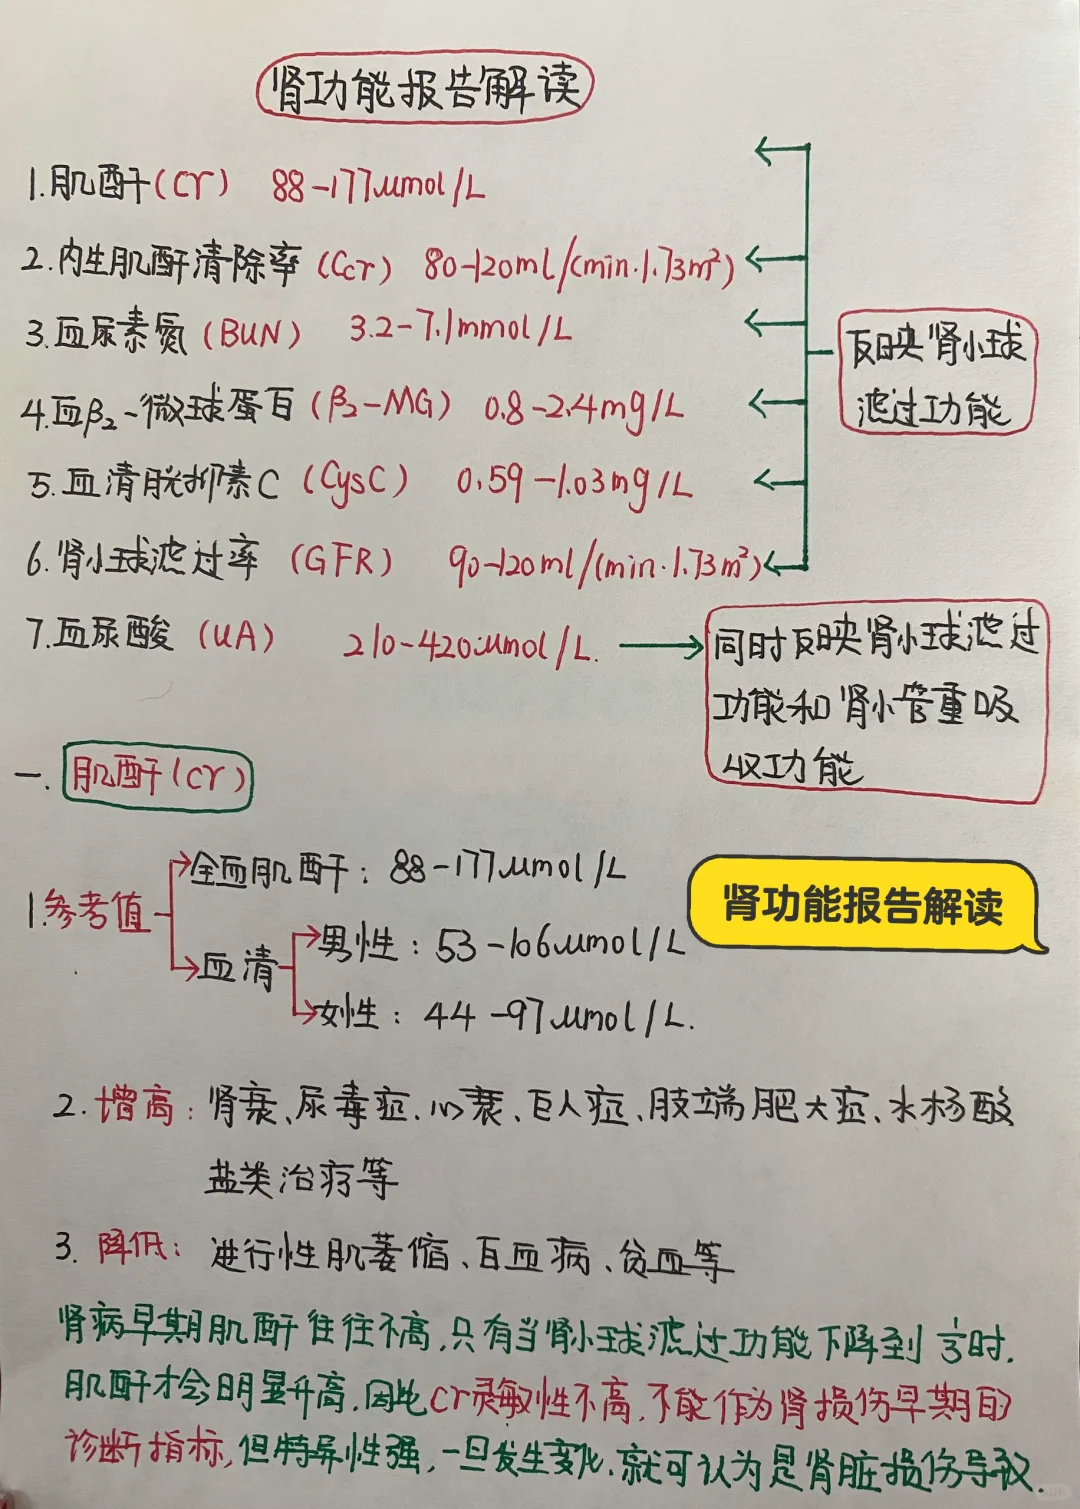 肾功能报告解读
1.肌酐(cr) 88-177μmol/L
2.内生肌酐清除率(Ccr) 80-120ml/(min·1.73m²)
3.血尿素氮(BUN) 3.2-7.1mmol/L
4.血β₂-微球蛋白(β₂-MG) 0.8-2.4mg/L
5.血清胱抑素C(CysC) 0.59-1.03mg/L
6.肾小球滤过率(GFR) 90-120ml/(min·1.73m²)
反映肾小球
滤过功能
7.血尿酸(UA) 210-420μmol/L.
同时反映肾小球滤过
功能和肾小管重吸
收功能
一. 肌酐(cr)
1.参考值
全血肌酐: 88-177μmol/L
血清
男性: 53-106μmol/L
女性: 44-97μmol/L.
肾功能报告解读
2. 增高: 肾衰、尿毒症、心衰、巨人症、肢端肥大症、水杨酸
盐类治疗等
3. 降低: 进行性肌萎缩、白血病、贫血等
肾病早期肌酐往往不高,只有当肾小球滤过功能下降到⅓时.
肌酐才会明显升高.因此cr灵敏性不高.不能作为肾损伤早期的
诊断指标,但特异性强,一旦发生变化.就可认为是肾脏损伤导致.